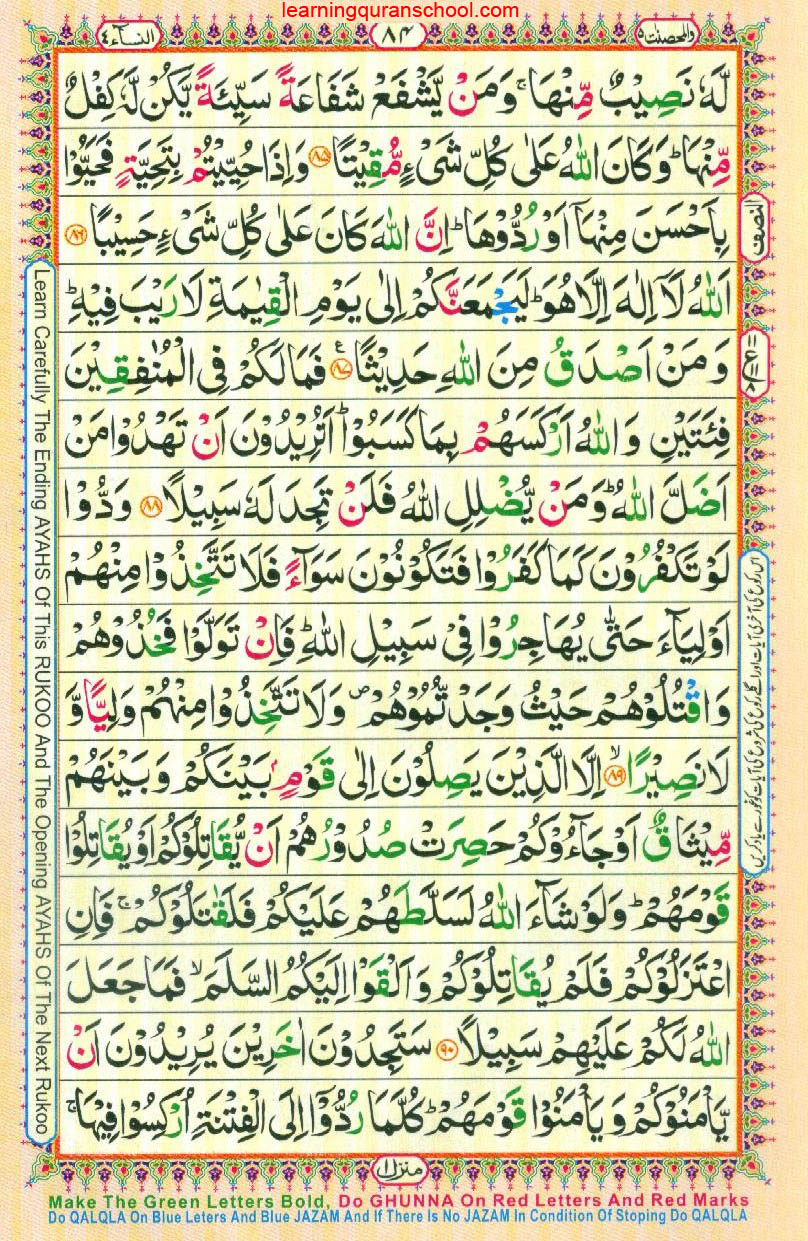 learningquranschool.com
والمحصنت ٥
٨٤
النساء ٤
لَّهٗ نَصِيْبٌ مِّنْهَا ۚ وَمَنْ يَّشْفَعْ شَفَاعَةً سَيِّئَةً يَّكُنْ لَّهٗ كِفْلٌ
مِّنْهَا ؕ وَكَانَ اللّٰهُ عَلٰى كُلِّ شَىْءٍ مُّقِيْتًا ﴿۸۵﴾ وَاِذَا حُيِّيْتُمْ بِتَحِيَّةٍ فَحَيُّوْا
بِاَحْسَنَ مِنْهَاۤ اَوْ رُدُّوْهَا ؕ اِنَّ اللّٰهَ كَانَ عَلٰى كُلِّ شَىْءٍ حَسِيْبًا ﴿۸۶﴾
النصف
اَللّٰهُ لَاۤ اِلٰهَ اِلَّا هُوَ ؕ لَيَجْمَعَنَّكُمْ اِلٰى يَوْمِ الْقِيٰمَةِ لَا رَيْبَ فِيْهِ ؕ
وَمَنْ اَصْدَقُ مِنَ اللّٰهِ حَدِيْثًا ﴿۸۷﴾ ع فَمَا لَكُمْ فِى الْمُنٰفِقِيْنَ
فِئَتَيْنِ وَاللّٰهُ اَرْكَسَهُمْ بِمَا كَسَبُوْا ؕ اَتُرِيْدُوْنَ اَنْ تَهْدُوْا مَنْ
اَضَلَّ اللّٰهُ ؕ وَمَنْ يُّضْلِلِ اللّٰهُ فَلَنْ تَجِدَ لَهٗ سَبِيْلًا ﴿۸۸﴾ وَدُّوْا
لَوْ تَكْفُرُوْنَ كَمَا كَفَرُوْا فَتَكُوْنُوْنَ سَوَآءً فَلَا تَتَّخِذُوْا مِنْهُمْ
اَوْلِيَآءَ حَتّٰى يُهَاجِرُوْا فِىْ سَبِيْلِ اللّٰهِ ؕ فَاِنْ تَوَلَّوْا فَخُذُوْهُمْ
وَاقْتُلُوْهُمْ حَيْثُ وَجَدْتُّمُوْهُمْ ۪ وَلَا تَتَّخِذُوْا مِنْهُمْ وَلِيًّا وَّ
لَا نَصِيْرًا ﴿۸۹﴾ ۙ اِلَّا الَّذِيْنَ يَصِلُوْنَ اِلٰى قَوْمٍۭ بَيْنَكُمْ وَبَيْنَهُمْ
مِّيْثَاقٌ اَوْ جَآءُوْكُمْ حَصِرَتْ صُدُوْرُهُمْ اَنْ يُّقَاتِلُوْكُمْ اَوْ يُقَاتِلُوْا
قَوْمَهُمْ ؕ وَلَوْ شَآءَ اللّٰهُ لَسَلَّطَهُمْ عَلَيْكُمْ فَلَقٰتَلُوْكُمْ ۚ فَاِنِ
اعْتَزَلُوْكُمْ فَلَمْ يُقَاتِلُوْكُمْ وَاَلْقَوْا اِلَيْكُمُ السَّلَمَ ۙ فَمَا جَعَلَ
اللّٰهُ لَكُمْ عَلَيْهِمْ سَبِيْلًا ﴿۹۰﴾ سَتَجِدُوْنَ اٰخَرِيْنَ يُرِيْدُوْنَ اَنْ
يَّاْمَنُوْكُمْ وَيَاْمَنُوْا قَوْمَهُمْ ؕ كُلَّمَا رُدُّوْۤا اِلَى الْفِتْنَةِ اُرْكِسُوْا فِيْهَا ۚ
منزل ١
Learn Carefully The Ending AYAHS Of This RUKOO And The Opening AYAHS Of The Next Rukoo
اس رکوع کی آخری آیات اور اگلے رکوع کی شروع کی آیات کو غور سے یاد کریں
Make The Green Letters Bold, Do GHUNNA On Red Letters And Red Marks
Do QALQLA On Blue Leters And Blue JAZAM And If There Is No JAZAM In Condition Of Stoping Do QALQLA